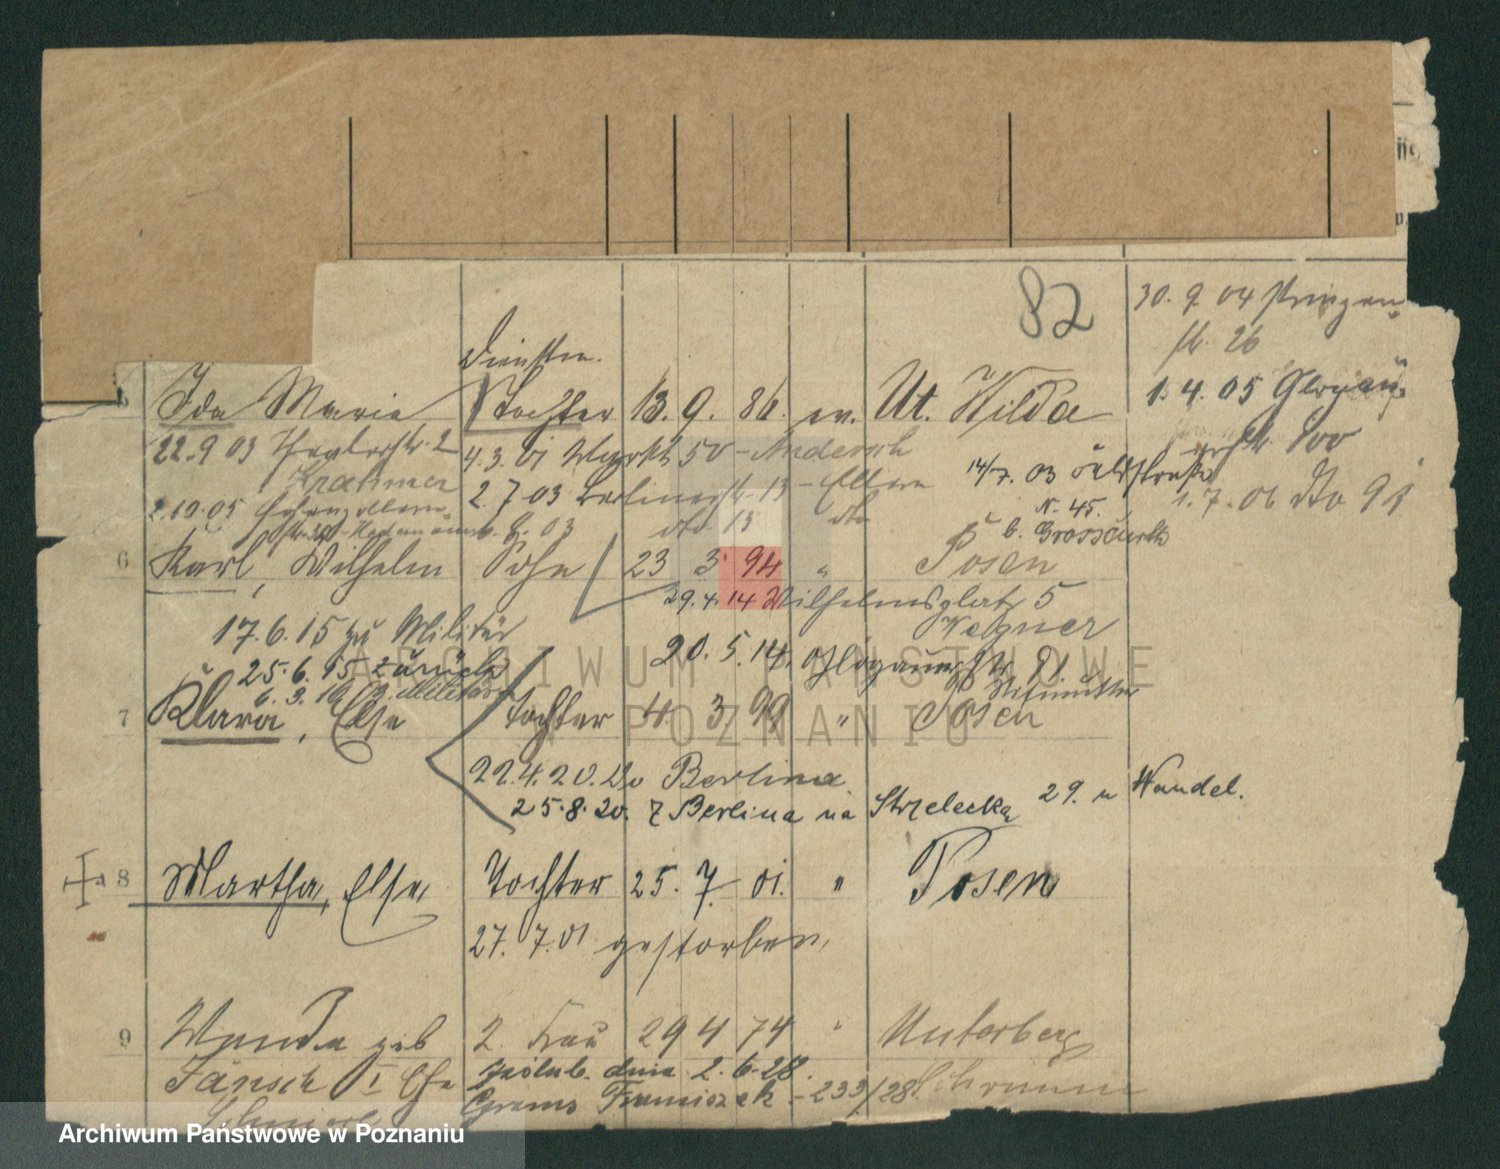 82
30. 9. 04
str. 26
Dienstm.
Ida Marie Tochter 13. 9. 86. ev. Ut. Wilda
1. 4. 05 Glogau
str. 100
22. 9 03 2 4. 3. 01 Markt 50 - Andersch
Krahmer 2. 7 03 Berlinerstr. 13 - Eltern 14/7. 03
1. 7. 06 dto 91
2. 10. 05 dto 13 dto N. 45.
03 b.
6 Karl, Wilhelm Sohn 23 3. 94 " Posen
29. 4. 14 Wilhelmsplatz 5
Wegner
17. 6. 15 zu Militär 20. 5. 14. Glogauerstr 81
25. 6. 15 zurück
6. 3. 16 z. Militär
7 Klara, Else Tochter 4 3 99 " Posen
22. 4. 20. do Berlina.
25. 8. 20. z Berlina na Strzelecka 29. u Wandel.
8 Martha, Else, Tochter 25. 7. 01. " Posen
27. 7. 01 gestorben,
9 Wanda geb 2. Frau 29 4 74 " Unterberg
Jänsch I Ehe zaślub. dnia 2. 6. 28. Schrimm
Grams Franciszek - 233/28
ARCHIWUM PAŃSTWOWE
W POZNANIU
Archiwum Państwowe w Poznaniu